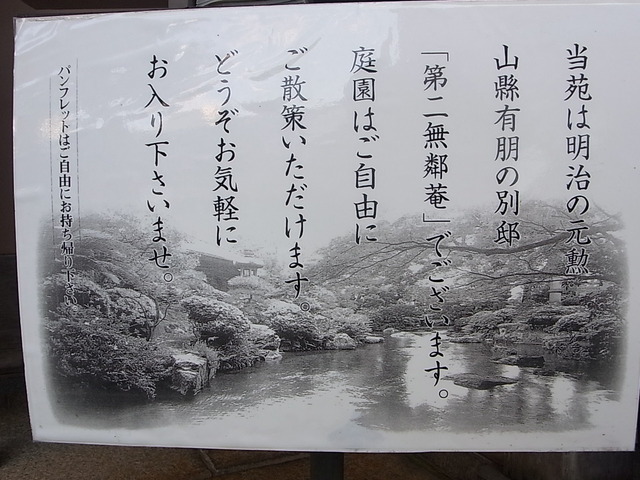 当苑は明治の元勲
山縣有朋の別邸
「第二無鄰菴」でございます。
庭園はご自由に
ご散策いただけます。
どうぞお気軽に
お入り下さいませ。
パンフレットはご自由にお持ち帰り下さい